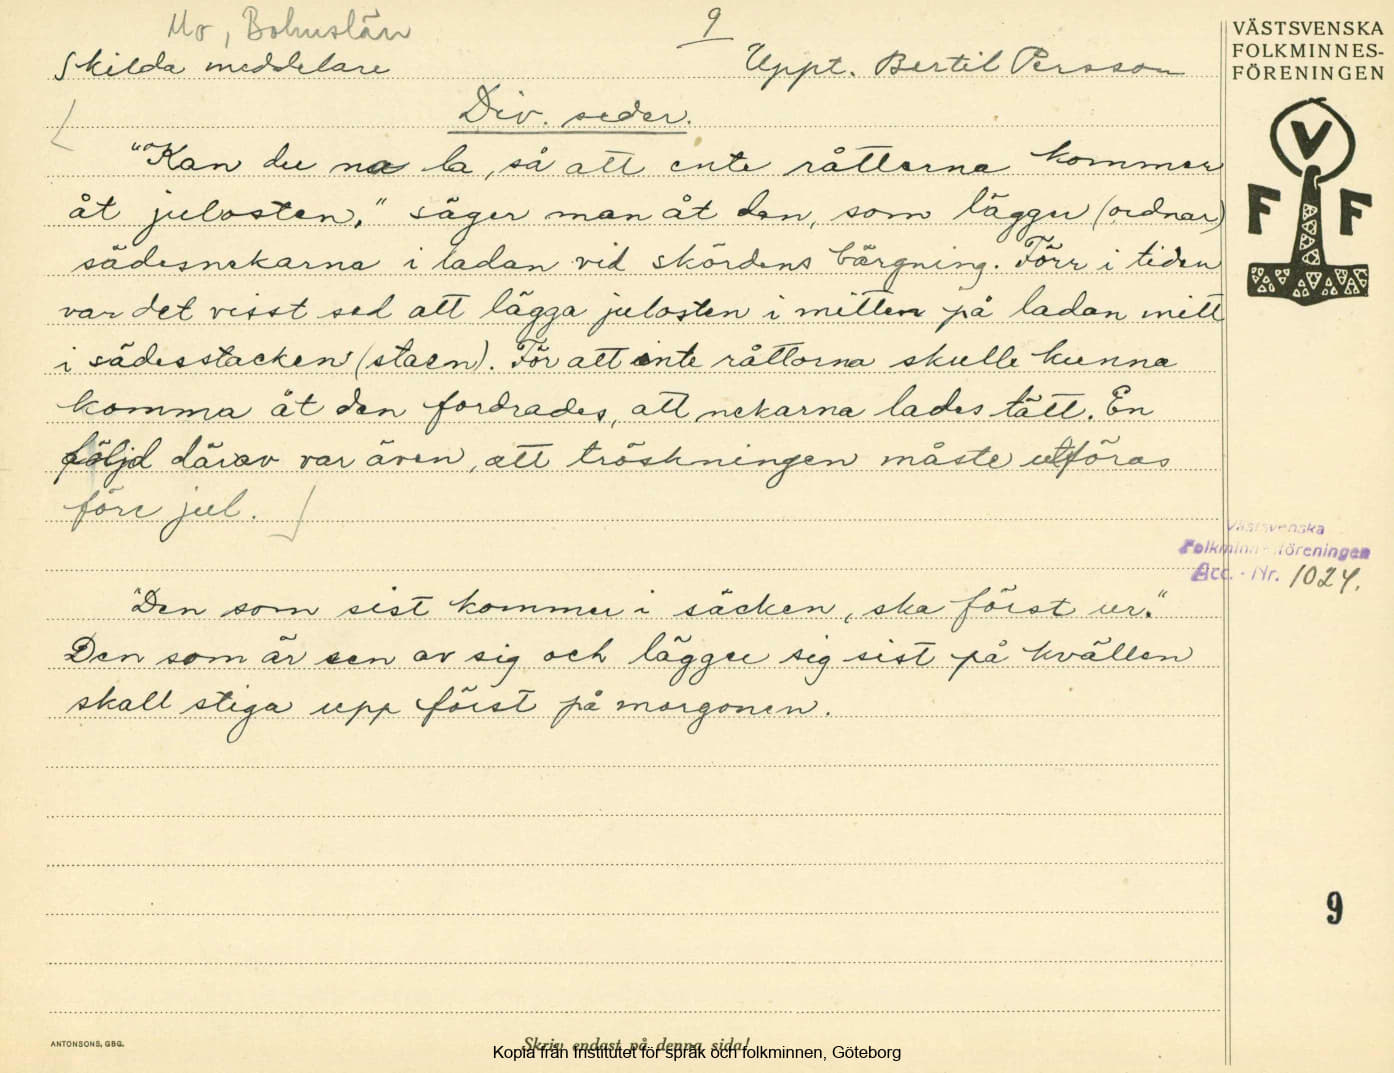 Mo, Bohuslän
9
VÄSTSVENSKA
FOLKMINNES-
FÖRENINGEN
Skilda meddelare
Uppt. Bertil Persson
Div. seder.
"Kan du na la, så att ente råtterna kommer
åt julosten," säger man åt den, som lägger (ordnar)
sädesnekarna i ladan vid skördens bärgning. Förr i tiden
var det visst sed att lägga julosten i mitten på ladan mitt
i sädesstacken (staen). För att inte råttorna skulle kunna
komma åt den fordrades, att nekarna lades tätt. En
följd därav var även, att tröskningen måste utföras
före jul.
"Den som sist kommer i säcken, ska först ur."
Den som är sen av sig och lägger sig sist på kvällen
skall stiga upp först på morgonen.
V
F F
Västsvenska
Folkminnesföreningen
Acc. - Nr. 1024.
9
ANTONSONS, GBG.
Skriv endast på denna sida!
Kopia från Institutet för språk och folkminnen, Göteborg